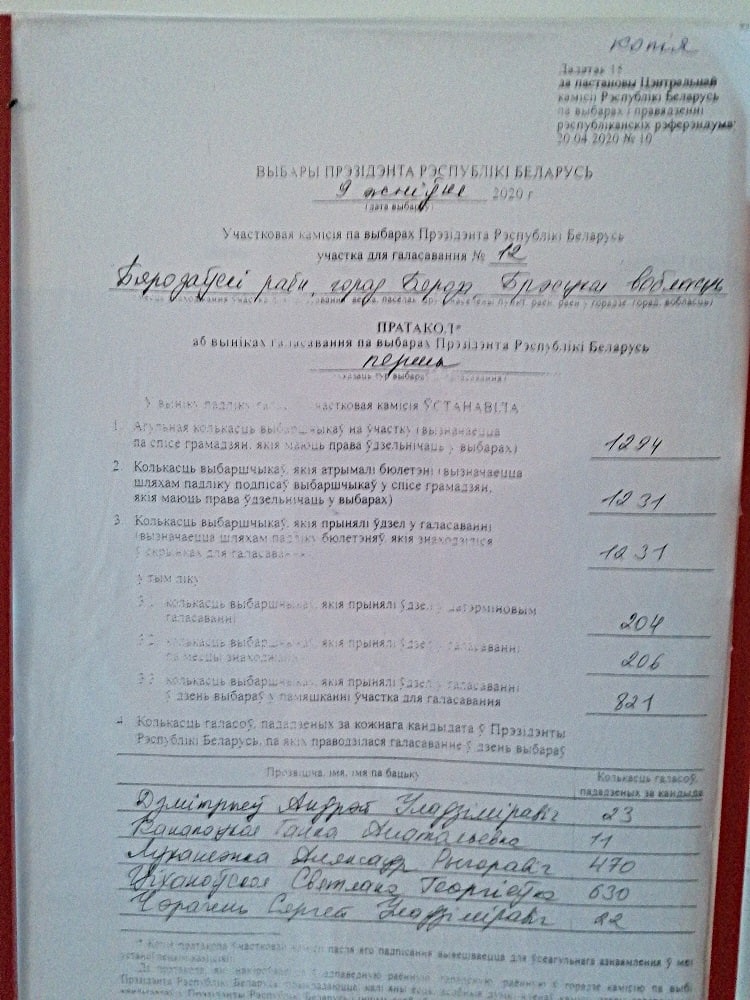 копія
Дадатак 15
да пастановы Цэнтральнай
камісіі Рэспублікі Беларусь
па выбарах і правядзенні
рэспубліканскіх рэферэндумаў
20.04.2020 № 10
ВЫБАРЫ ПРЭЗІДЭНТА РЭСПУБЛІКІ БЕЛАРУСЬ
9 жніўня 2020 г.
(дата выбараў)
Участковая камісія па выбарах Прэзідэнта Рэспублікі Беларусь
участка для галасавання № 12
Бярозаўскі раён, горад Бяроза, Брэсцкая вобласць
ПРАТАКОЛ*
аб выніках галасавання па выбарах Прэзідэнта Рэспублікі Беларусь
першы
(указаць тур выбараў галасавання)
У выніку падліку участковая камісія ЎСТАНАВІЛА
1. Агульная колькасць выбаршчыкаў на ўчастку (вызначаецца
па спісе грамадзян, якія маюць права ўдзельнічаць у выбарах) 1294
2. Колькасць выбаршчыкаў, якія атрымалі бюлетэні (вызначаецца
шляхам падліку подпісаў выбаршчыкаў у спісе грамадзян,
якія маюць права ўдзельнічаць у выбарах) 1231
3. Колькасць выбаршчыкаў, якія прынялі ўдзел у галасаванні
(вызначаецца шляхам падліку бюлетэняў, якія знаходзіліся
ў скрынках для галасавання) 1231
у тым ліку
3.1. колькасць выбаршчыкаў, якія прынялі ўдзел у датэрміновым
галасаванні 204
3.2. колькасць выбаршчыкаў, якія прынялі ўдзел у галасаванні
па месцы знаходжання 206
3.3. колькасць выбаршчыкаў, якія прынялі ўдзел у галасаванні
ў дзень выбараў у памяшканні ўчастка для галасавання 821
4. Колькасць галасоў, пададзеных за кожнага кандыдата ў Прэзідэнты
Рэспублікі Беларусь, па якіх праводзілася галасаванне ў дзень выбараў
Прозвішча, імя, імя па бацьку Колькасць галасоў,
пададзеных за кандыда
Дзмітрыеў Андрэй Уладзіміравіч 23
Канапацкая Ганна Анатольеўна 11
Лукашэнка Аляксандр Рыгоравіч 470
Ціханоўская Святлана Георгіеўна 630
Чэрачэнь Сяргей Уладзіміравіч 22
* Копія пратакола ўчастковай камісіі пасля яго падпісання вывешваецца для ўсеагульнага азнаямлення ў мес